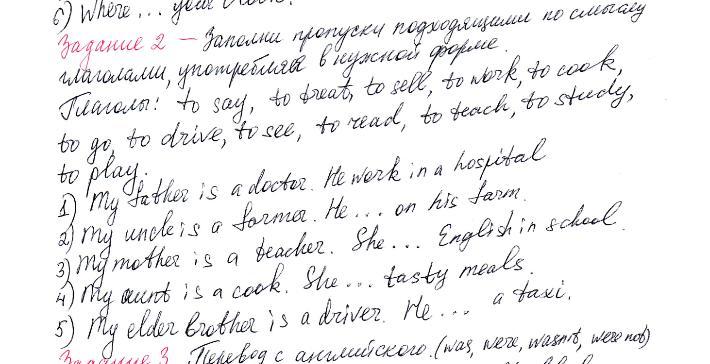 6) Where ... your
Задание 2 – Заполни пропуски подходящими по смыслу
глаголами, употребляя в нужной форме.
Глаголы: to say, to treat, to sell, to work, to cook,
to go, to drive, to see, to read, to teach, to study,
to play.
1) My father is a doctor. He work in a hospital
2) My uncle is a farmer. He ... on his farm.
3) My mother is a teacher. She ... English in school.
4) My aunt is a cook. She ... tasty meals.
5) My elder brother is a driver. He ... a taxi.
Задание 3. Перевод с английского. (was, were, wasn't, were not)